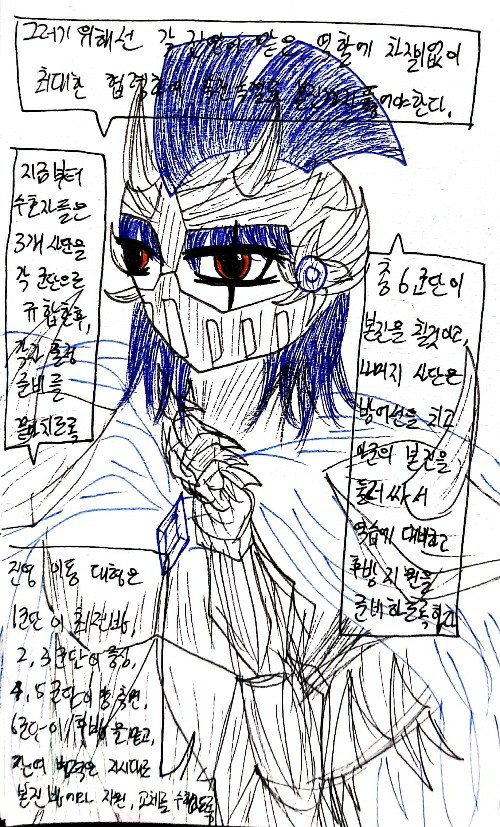 그러기 위해선 각 군단이 맡은 역할에 차질없이
최대한 협력하여 본진까지 뚫어야 한다.
지금부터
수호자들은
3개 사단을
각 군단으로
규합한 후,
각자 출정
준비를
끝마치도록
총 6군단이
본진을 칠것이고,
나머지 사단은
방어선을 치고
적군의 본진을
둘러싸서
역습에 대비하고
후방 지원을
준비하도록 한다
진영 이동 대형은
1군단이 최전방,
2,3군단이 중앙,
4,5군단이 양 측면,
6군단이 후방을 맡고,
잔여 병력은 지시대로
본진 방어나 지원, 교체를 수행하도록